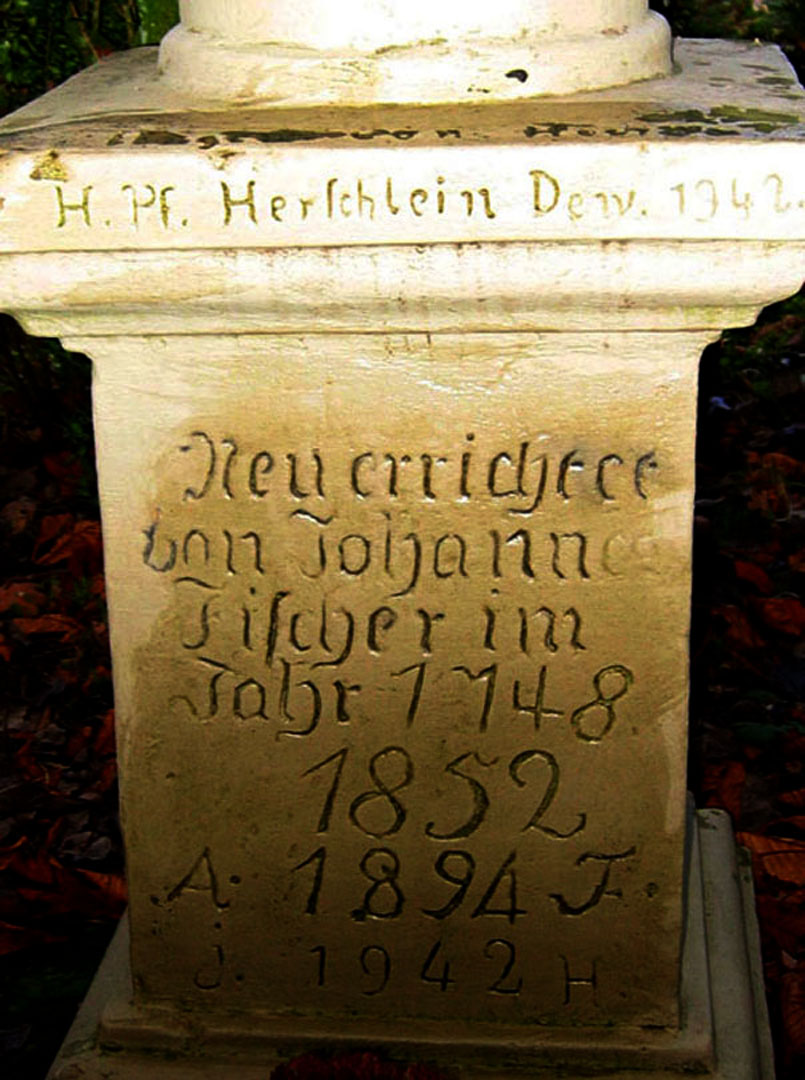 H. Pf. Herſchlein Dew. 1942.
Neu errichtete
von Johannes
Fiſcher im
Jahr 1748.
1852
.A. 1894 F.
J. 1942 H.